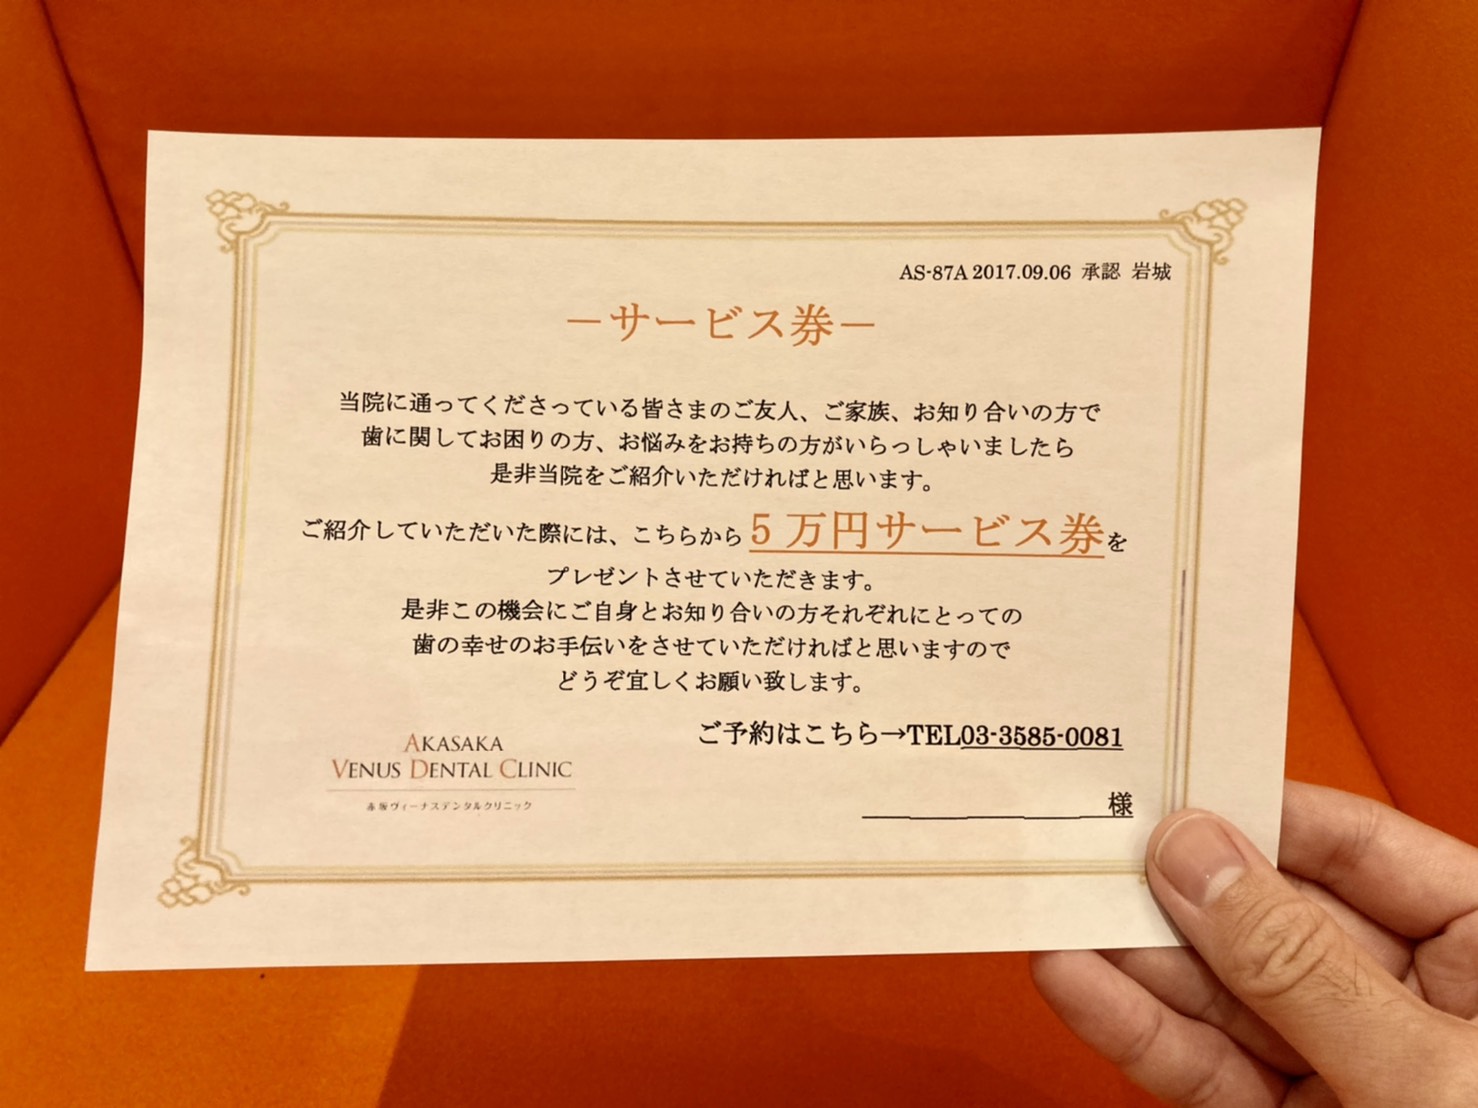 AS-87A 2017.09.06 承認 岩城
－サービス券－
当院に通ってくださっている皆さまのご友人、ご家族、お知り合いの方で
歯に関してお困りの方、お悩みをお持ちの方がいらっしゃいましたら
是非当院をご紹介いただければと思います。
ご紹介していただいた際には、こちらから５万円サービス券を
プレゼントさせていただきます。
是非この機会にご自身とお知り合いの方それぞれにとっての
歯の幸せのお手伝いをさせていただければと思いますので
どうぞ宜しくお願い致します。
ご予約はこちら→TEL03-3585-0081
AKASAKA
VENUS DENTAL CLINIC
赤坂ヴィーナスデンタルクリニック
様